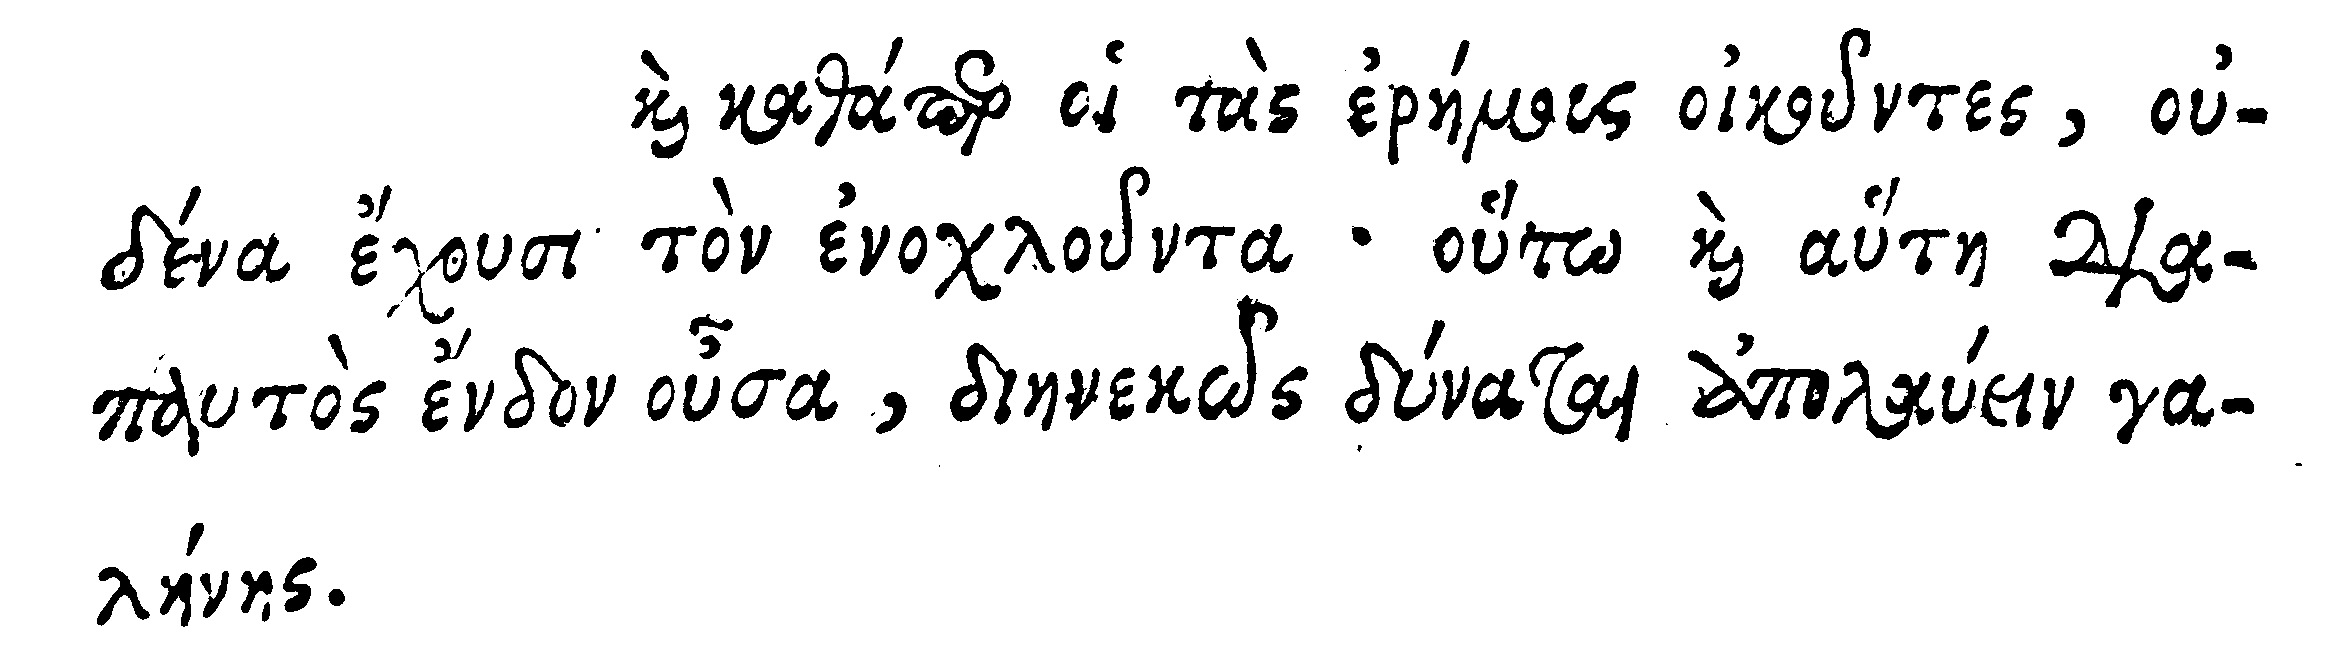 καὶ καθάπερ οἱ τὰς ἐρήμους οἰκοῦντες, οὐ-
δένα ἔχουσι τὸν ἐνοχλοῦντα · οὕτω καὶ αὕτη δια-
παντὸς ἔνδον οὖσα, διηνεκῶς δύναται ἀπολαύειν γα-
λήνης.